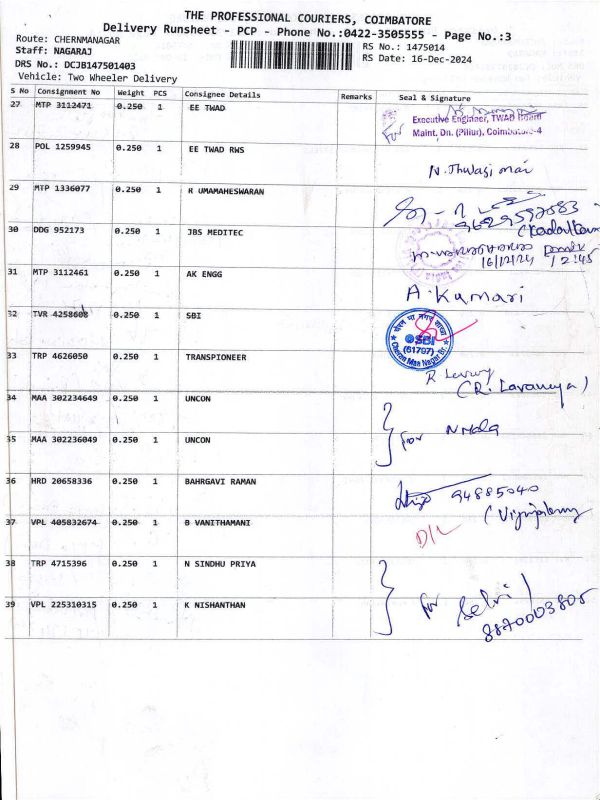 THE PROFESSIONAL COURIERS, COIMBATORE
Delivery Runsheet - PCP - Phone No.:0422-3505555 - Page No.:3
Route: CHERNMANAGAR
Staff: NAGARAJ
RS No.: 1475014
DRS No.: DCJB147501403
RS Date: 16-Dec-2024
Vehicle: Two Wheeler Delivery
S No Consignment No Weight PCS Consignee Details Remarks Seal & Signature
27 MTP 3112471 0.250 1 EE TWAD
For Executive Engineer, TWAD Board
Maint. Dn. (Pillur), Coimbatore-4
28 POL 1259945 0.250 1 EE TWAD RWS
N. Thulasi mai
29 MTP 1336077 0.250 1 R UMAMAHESWARAN
9629597083
30 DDG 952173 0.250 1 JBS MEDITEC
16/12/24 12:45
31 MTP 3112461 0.250 1 AK ENGG
A. Kumari
32 TVR 4258608 0.250 1 SBI
SBI
(51797)
33 TRP 4626050 0.250 1 TRANSPIONEER
(R. Lavanya)
34 MAA 302234649 0.250 1 UNCON
for
35 MAA 302236049 0.250 1 UNCON
36 HRD 20658336 0.250 1 BAHRGAVI RAMAN
94885040
37 VPL 405832674 0.250 1 B VANITHAMANI
D/L
38 TRP 4715396 0.250 1 N SINDHU PRIYA
for Selvi
39 VPL 225310315 0.250 1 K NISHANTHAN
8870003805